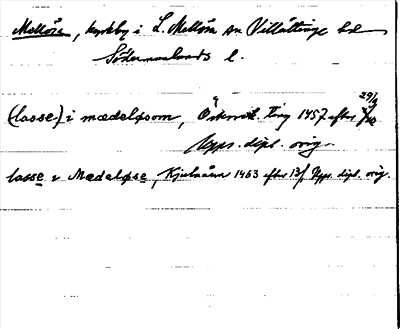 Mellösa, kyrkby i L. Mellösa sn Villåttinge hd
Södermanlands l.
(lasse) i mædeløsom, ting 1457 efter 29/9
Upps. dipl. orig.
lasse i Mædeløse, 1463 efter 13/1 Upps. dipl. orig.